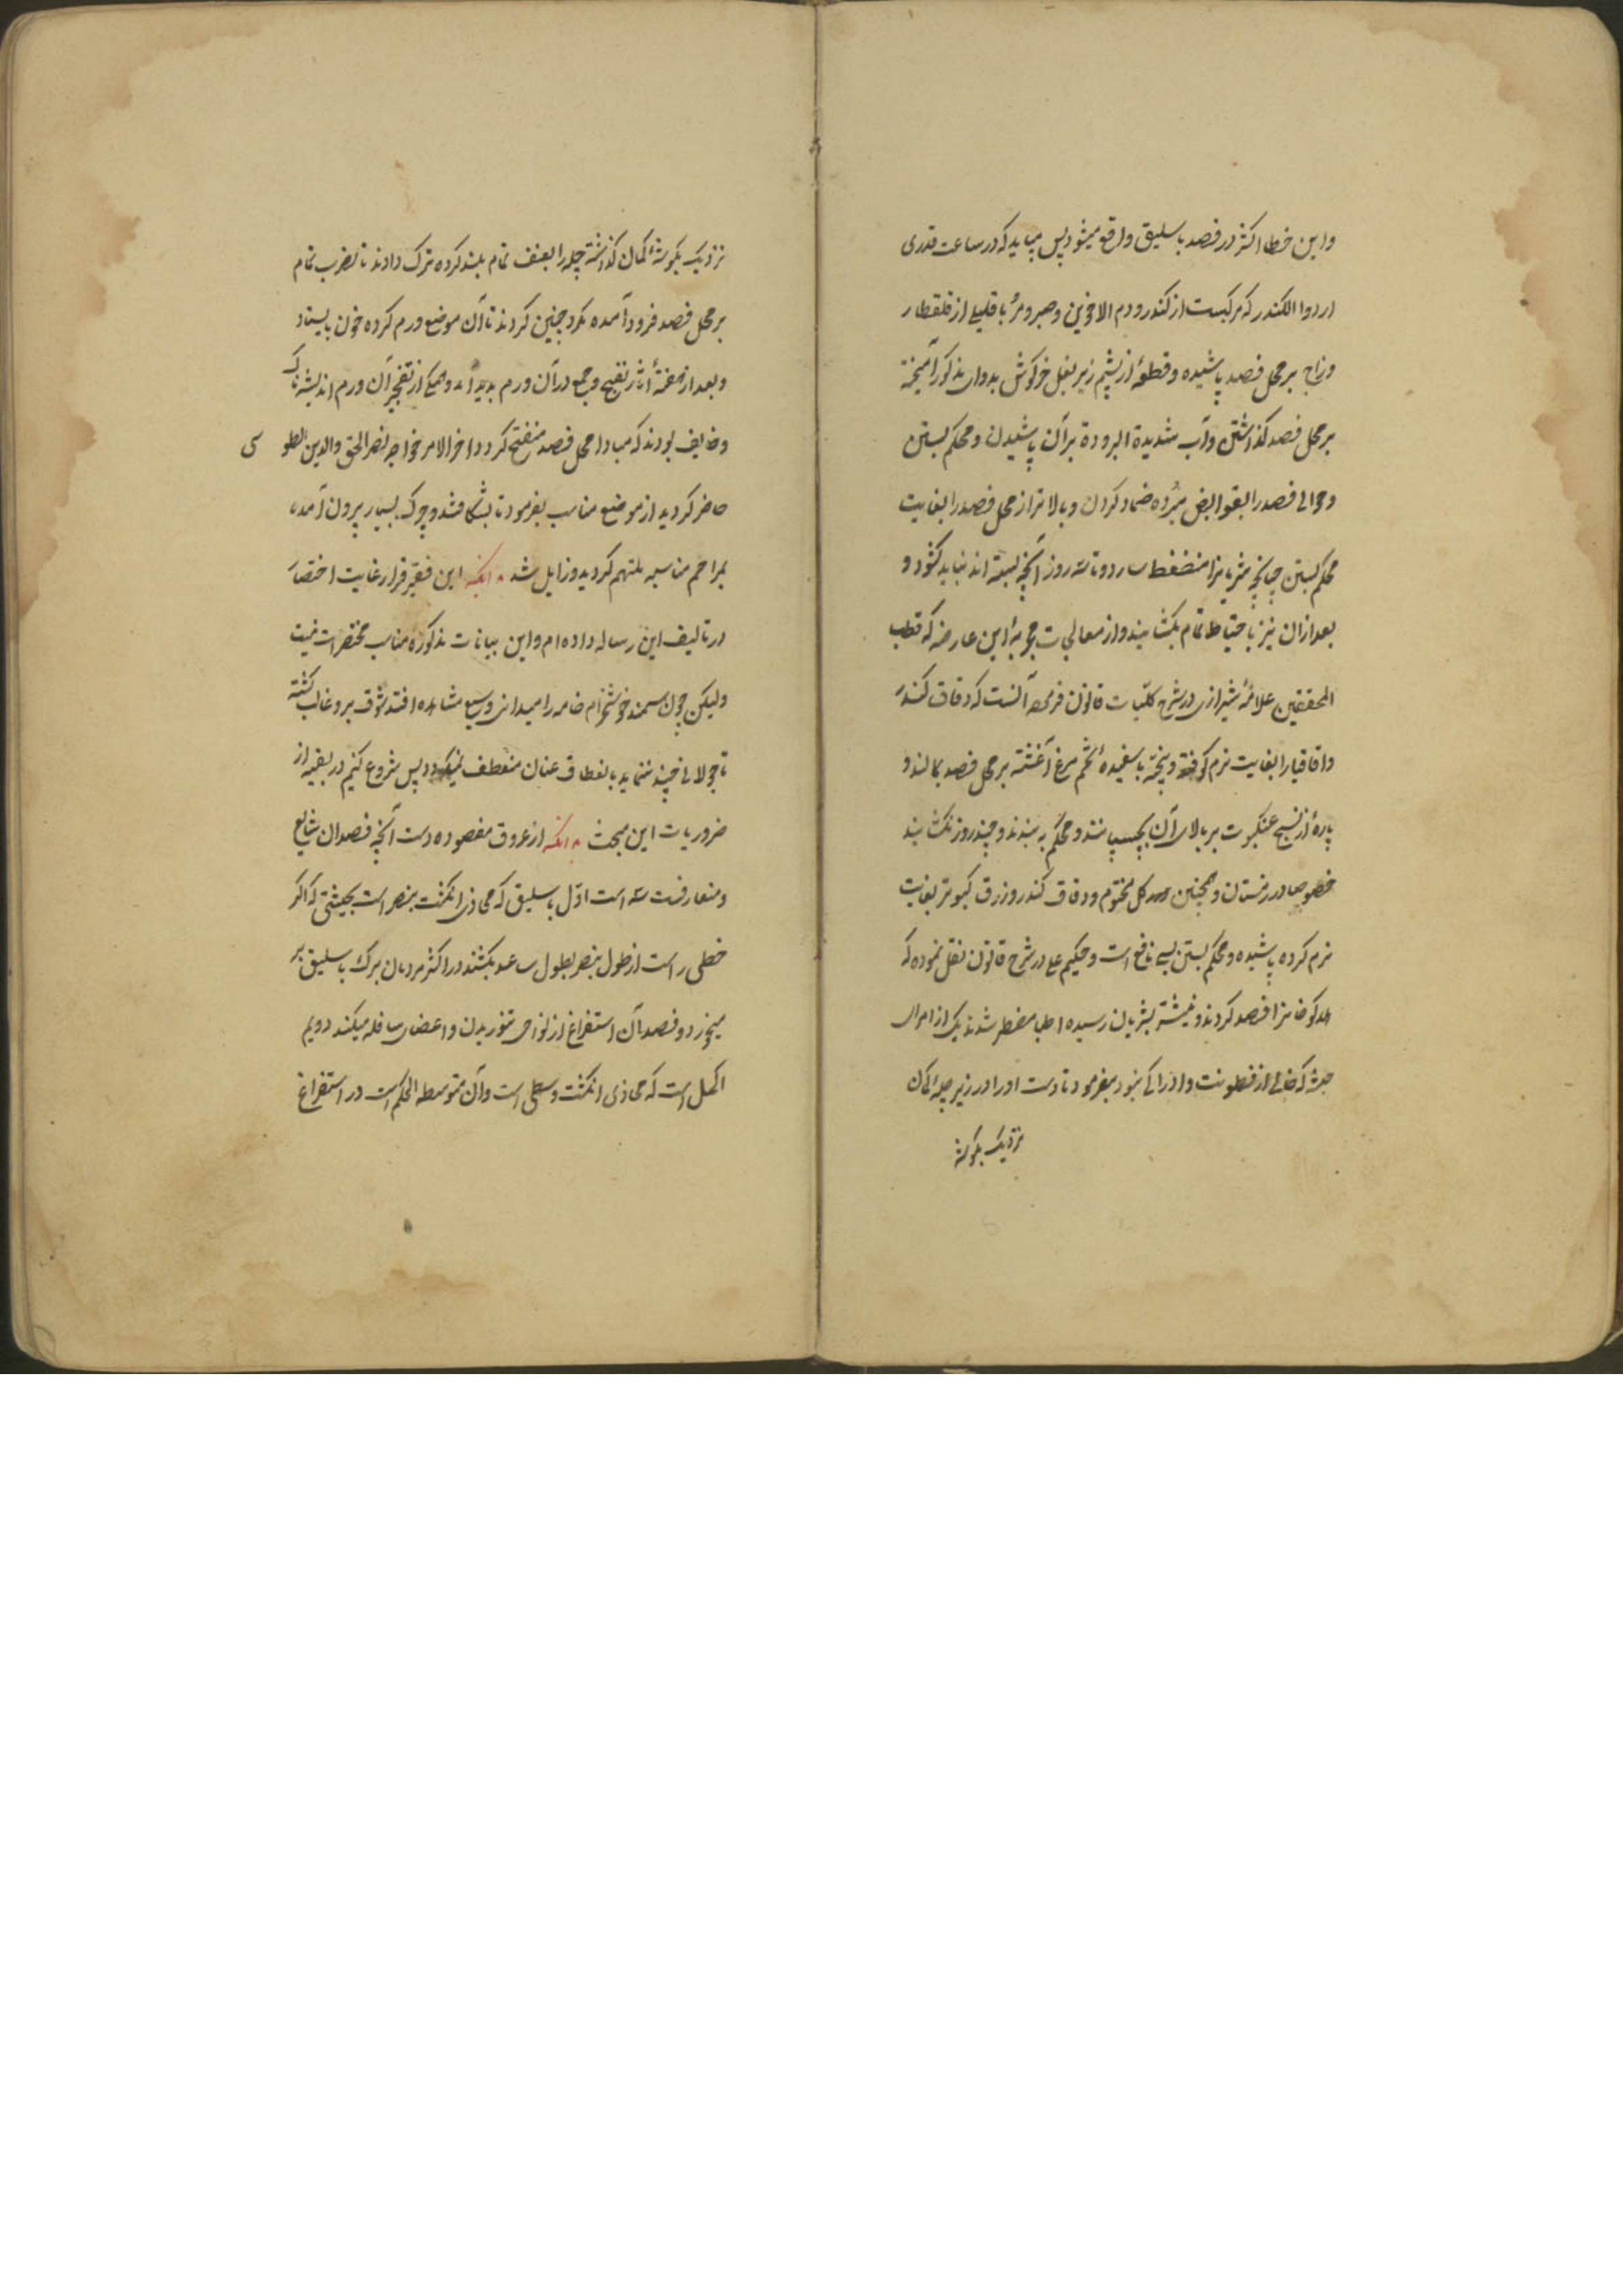 واین خطا اکثر در فصد باسلیق واقع میشود پس میباید که در ساعت قدری
از دواء الکندر که مرکبست از کندر و دم الاخوین و صبر و مر با قلیلی از قلقطار
وزاج بر محل فصد پاشیده و قطعهٔ از پشم زیر بغل خرکوش بدواء مذکور آمیخته
بر محل فصد کذاشتن و آب شدیدة البرودة بر آن پاشیدن و محکم بستن
و حوالی فصد را بقوابض مبرده ضماد کردن و بالاتر از محل فصد را بغایت
محکم بستن چنانچه شریانرا منضغط سازد و تا سه روز آنچه بسته اند نباید کشود و
بعد از آن نیز باحتیاط تمام بکشایند و از معالجات مجربهٔ این عارضه که قطب
المحققین علامهٔ شیرازی در شرح کلیات قانون فرموده آنست که دقاق کندر
و اقاقیا را بغایت نرم کوفته و بیخته با سفیدهٔ تخم مرغ آغشته بر محل فصد بمالند و
پارهٔ از نسج عنکبوت بر بالای آن بچسپانند و محکم به بندند و چند روز نکشایند
خصوصا در زمستان و همچنین کل مختوم و دقاق کندر و زرق کبوتر بغایت
نرم کرده پاشیده و محکم بستن بسی نافع است و حکیم علی در شرح قانون نقل نموده که
هلاکو خانرا فصد کردند و نیشتر بشریان رسیده اطبا مضطر شدند یکی از امرای
جثه که خالی از فطونت و ادراکی نبود بفرمود تا دست او را در زیر چلهٔ کمان
نزدیک بکوشه
نزدیک بکوشهٔ کمان کذاشته چله را بعنف تمام بلند کرده ترک دادند تا بضرب تمام
بر محل فصد فرود آمده مکرر چنین کردند تا آن موضع ورم کرده خون بایستاد
و بعد از هفتهٔ آثار تقیح و جمع در آن ورم پدید آمد و همکی از تفجر آن ورم اندیشه ناک
و خایف بودند که مبادا محل فصد منفتح کردد آخر الامر خواجه نصیر الحق والدین الطوسی
حاضر کردید از موضع مناسب بفرمود تا بشکافتند و چرک بسیار بیرون آمده
بمراحم مناسبه ملتهم کردید و زایل شد آنکه این فقیر قرار غایت اختصار
در تالیف این رساله داده ام و این بیانات مذکوره مناسب مختصرات نیست
ولیکن چون سمند خوشخرام خامه را میدانی وسیع مشاهده افتد شوق برو غالب کشته
تا جولانی چند ننماید بانعطاف عنان منعطف نمیکردد پس شروع کنیم در بقیه از
ضروریات این مبحث آنکه از عروق مفصوده دست آنچه فصد آن شایع
و متعارفست سه است اول باسلیق که محاذی انکشت بنصر است بحیثیتی که اکر
خطی راست از طول بنصر بطول ساعد بکشند در اکثر مردمان برک باسلیق بر
میخورد و فصد آن استفراغ از نواحی تنور بدن و اعضای سافله میکند دویم
اکحل است که محاذی انکشت وسطی است و آن متوسطه الحکم است در استفراغ